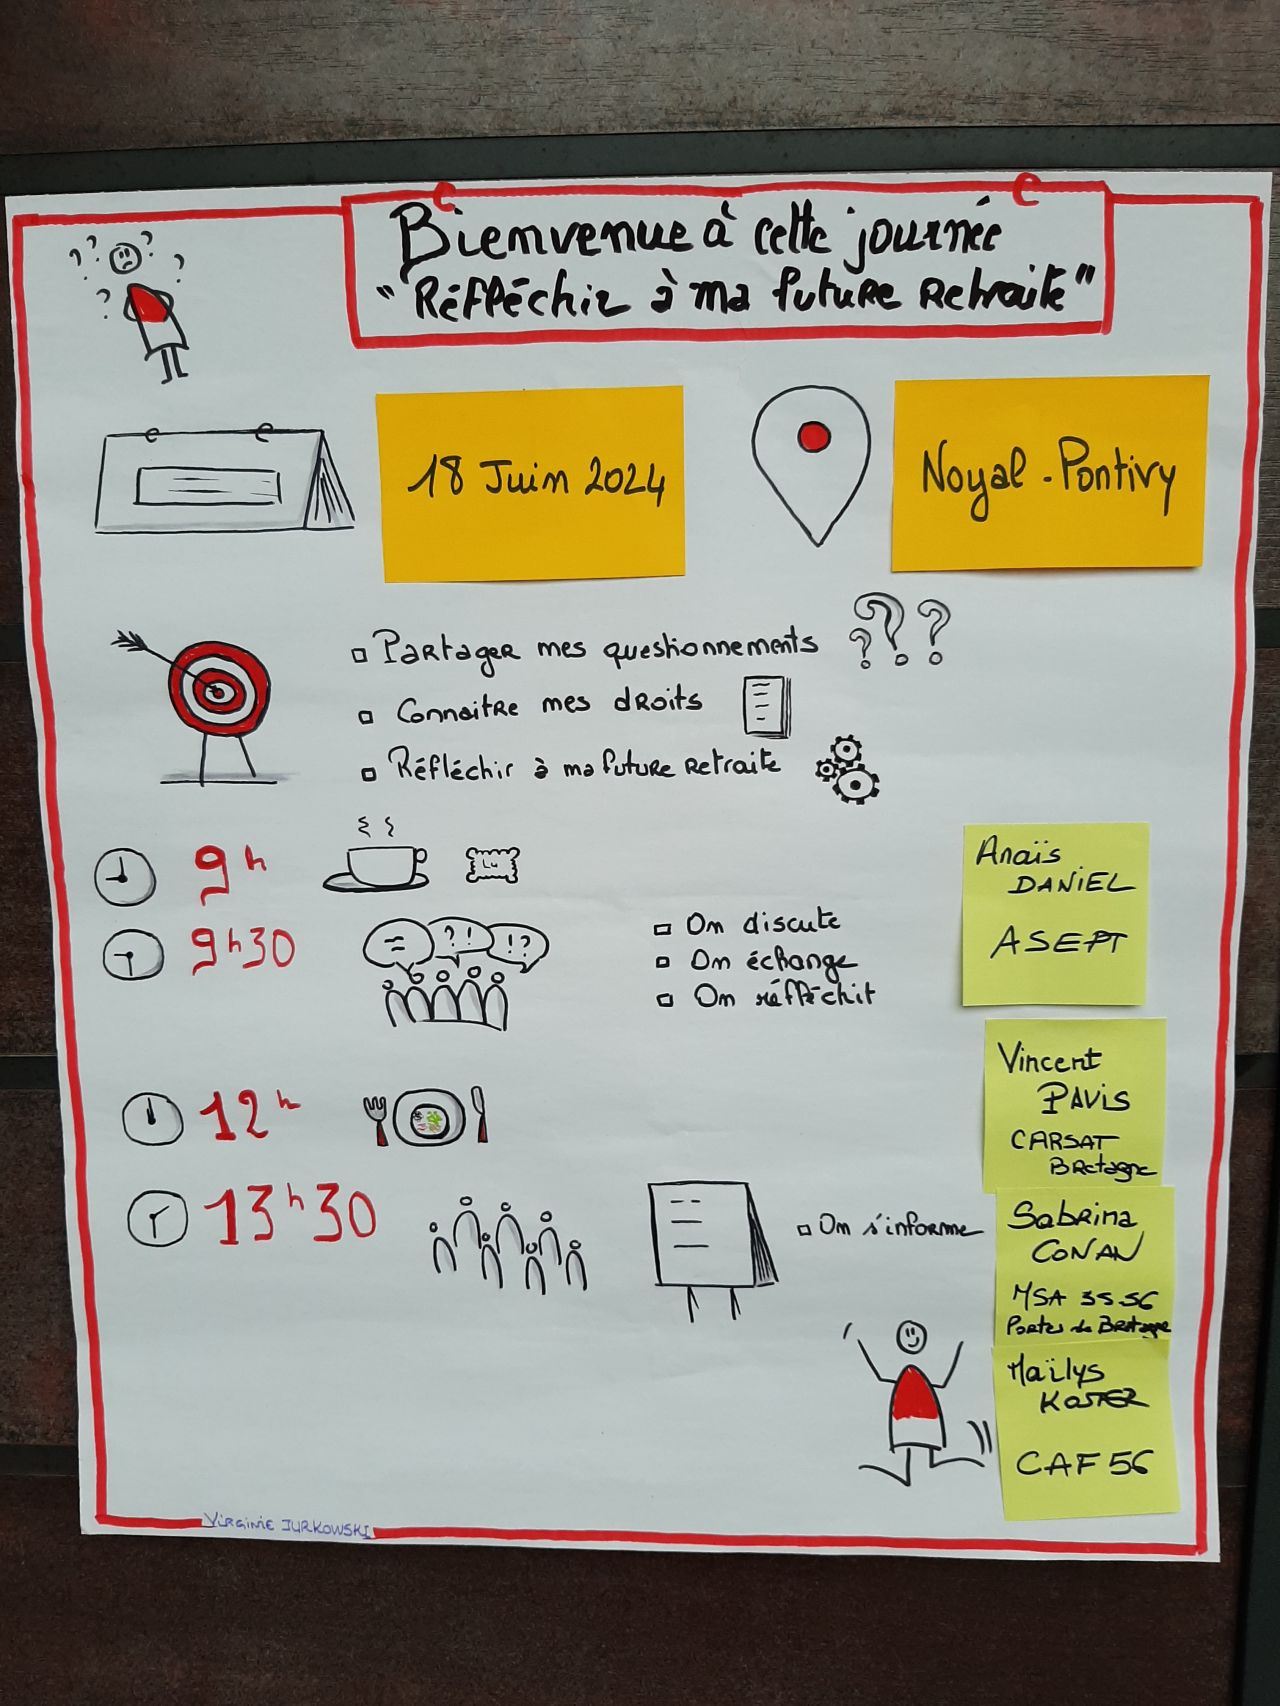 Bienvenue à cette journée
"Réfléchir à ma future retraite"
18 Juin 2024
Noyal-Pontivy
Partager mes questionnements ???
Connaitre mes droits
Réfléchir à ma future retraite
9h
LU
9h30
?!
!?
On discute
On échange
On réfléchit
Anaïs
DANIEL
ASEPT
12h
Vincent
PAVIS
CARSAT
Bretagne
13h30
On s'informe
Sabrina
CONAN
MSA 35 56
Portes de Bretagne
Maïlys
KOSTER
CAF 56
VIRGINIE JURKOWSKI